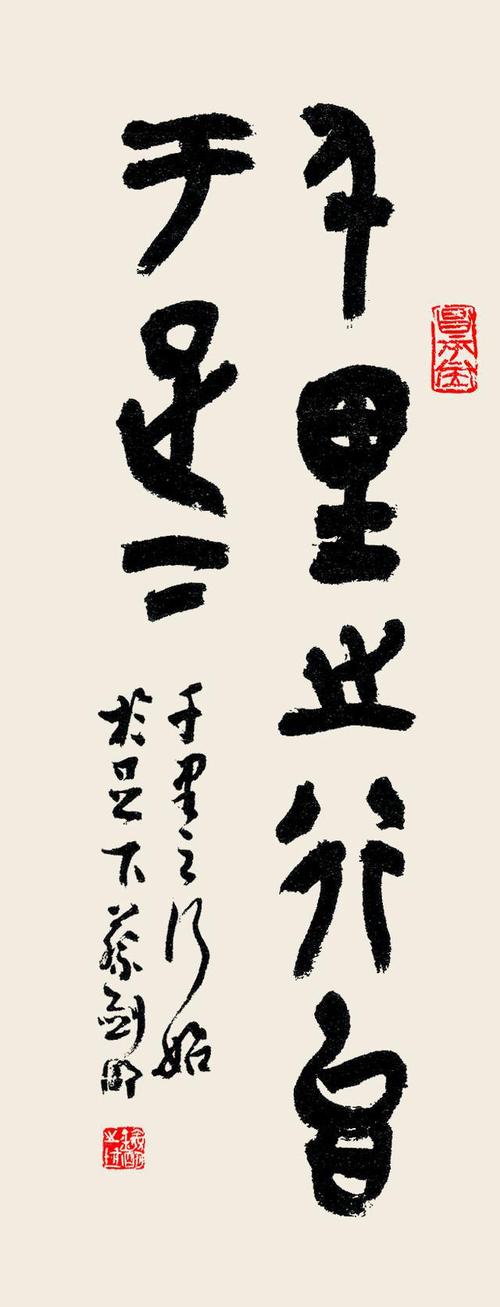 千里之行始
于足下
千里之行始
於足下蔡剑明